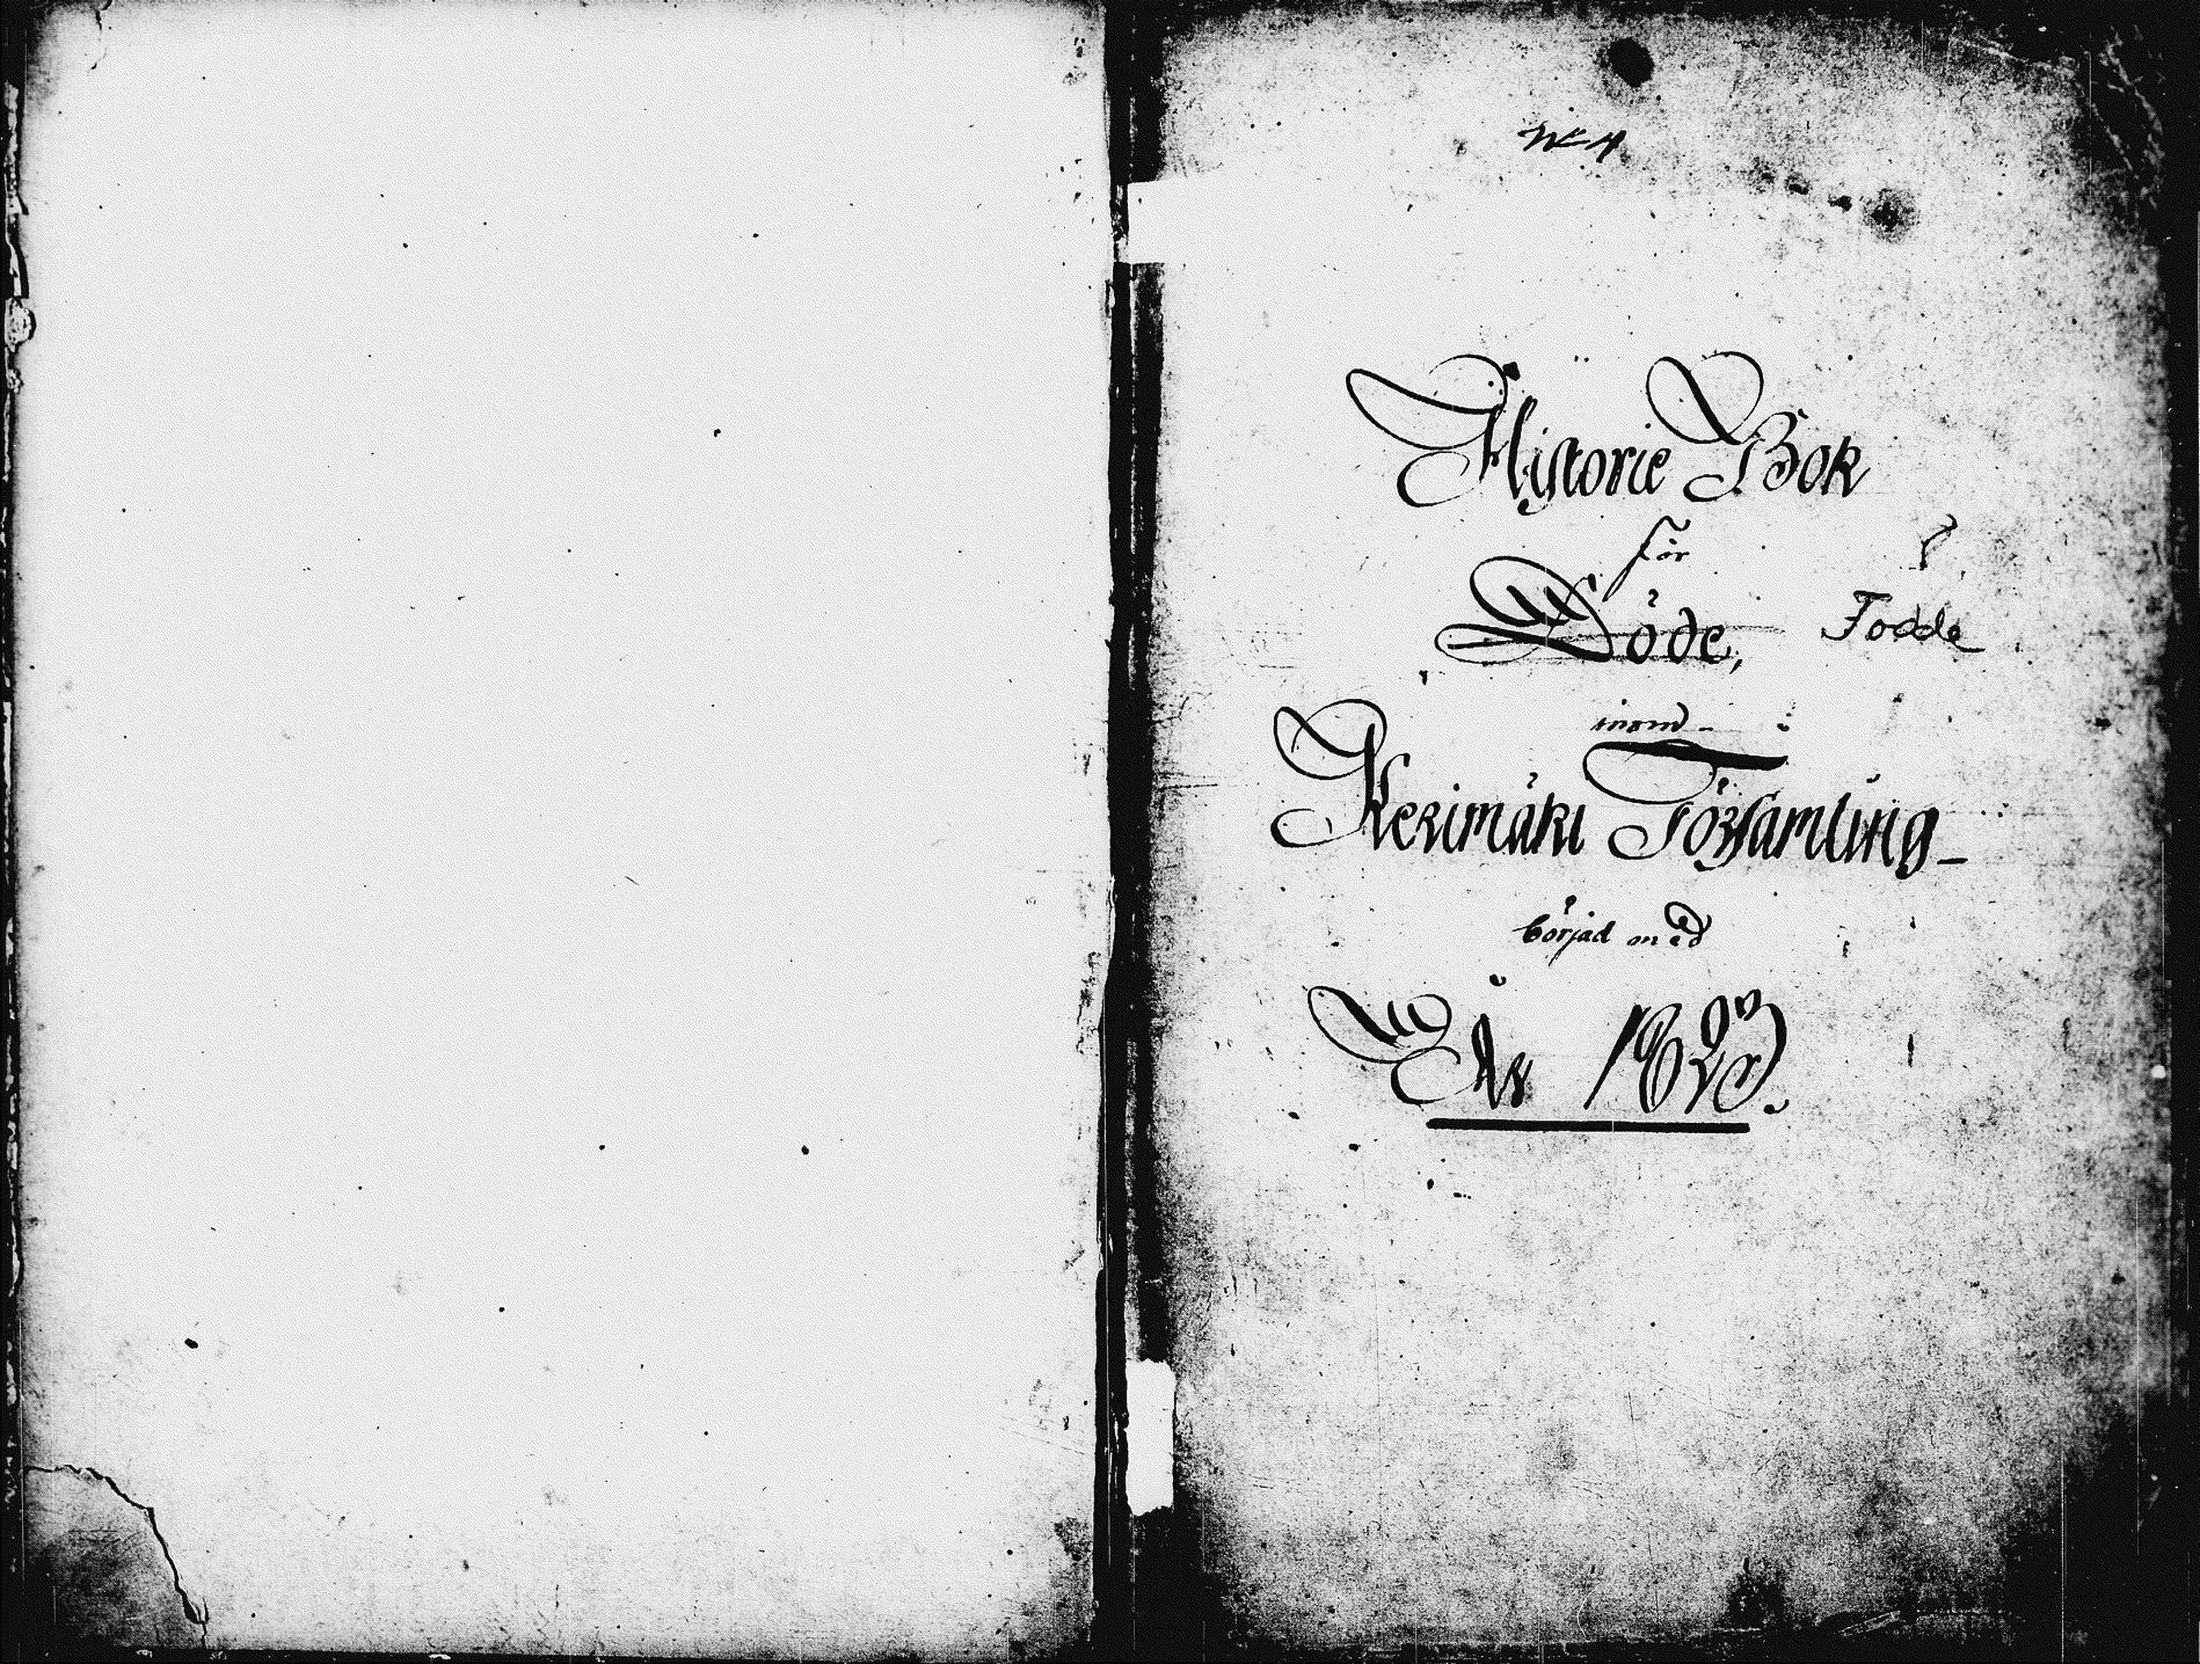 Historie Bok
för
Döde, Födde
inom
Kerimäki Församling
börjad med
År 1823.